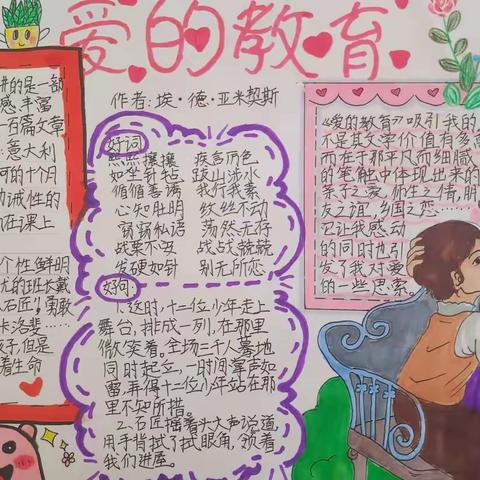 爱的教育
作者:埃·德·亚米契斯
讲的是一部
感,丰富
百篇文章
:意大利
的十个月
诫性的
在课上
个性鲜明
优的班长戴
石匠",勇敢
卡洛斐……
孩子,但是
着生命
好词
熙熙攘攘 疾言厉色
如坐针毡 跋山涉水
循循善诱 我行我素
心知肚明 纹丝不动
窃窃私语 荡然无存
战栗不安 战战兢兢
发硬如针 别无所恋
好句:
1.这时,十二位少年走上
舞台,排成一列,在那里
微笑着。全场三千人蓦地
同时起立,一时间掌声如
雷,弄得十二位少年站在那
里不知所措。
2.石匠摇着头大声说道,
用手背拭了拭眼角,领着
我们进屋。
《爱的教育》吸引我的
不是其文学价值有多高
而在于那平凡而细腻
的笔触中体现出来的
亲子之爱,师生之情,朋
友之谊,乡国之恋……
它让我感动
的同时也引
发了我对爱
的一些思索